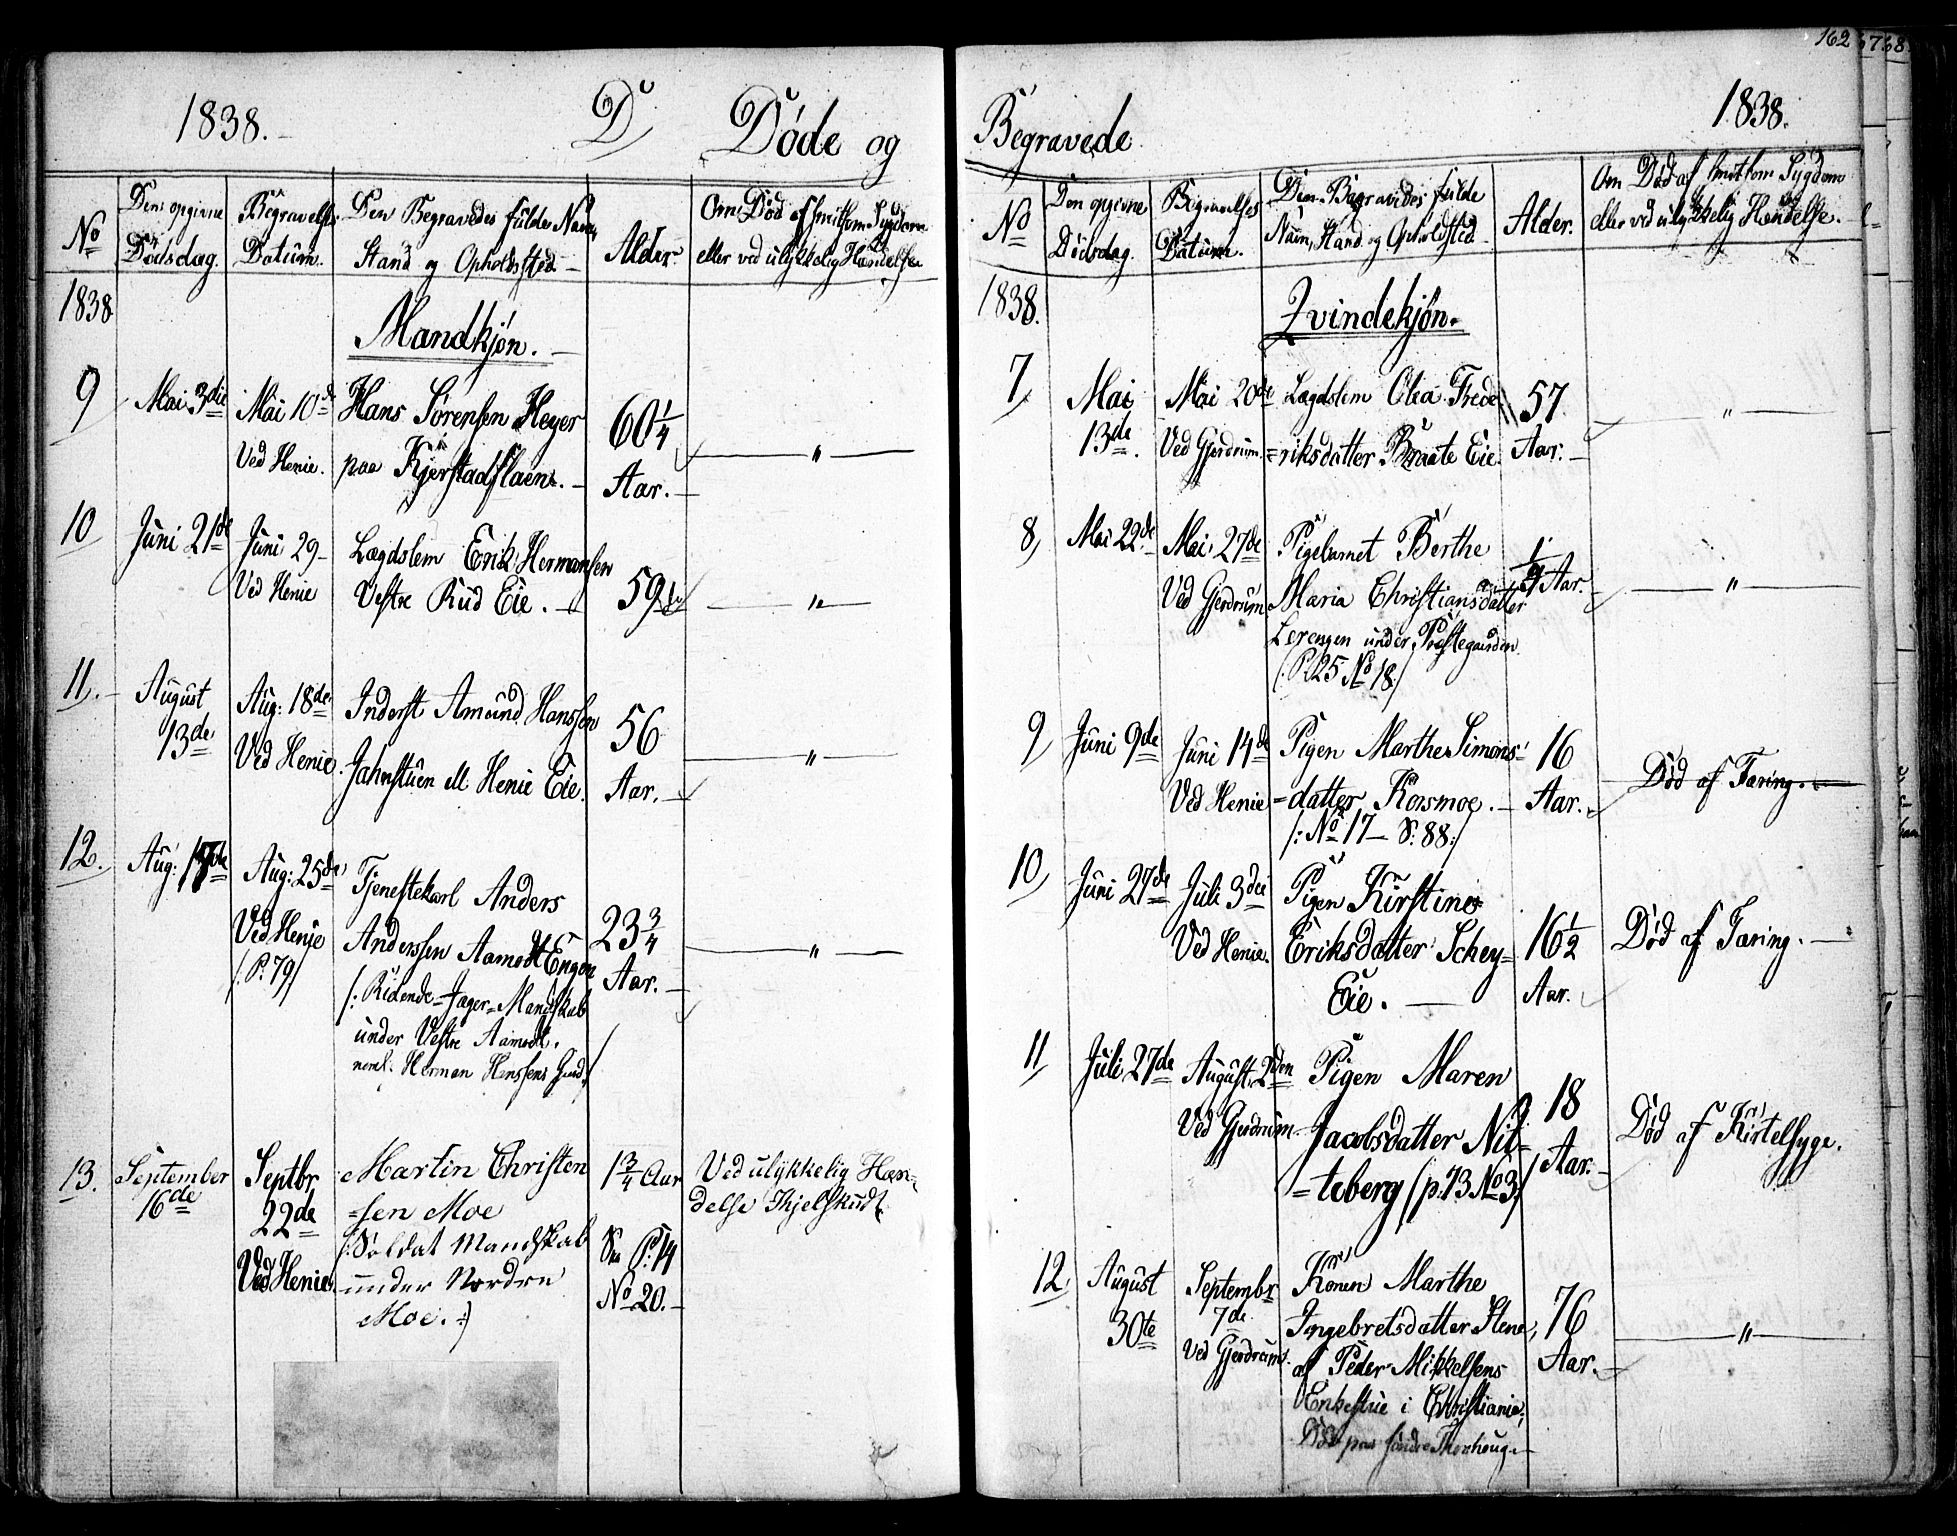 1838.
D
Døde og
No
Den opgivne
Dødsdag.
Begravelses
Datum.
Den Begravedes fulde Navn,
Stand og Opholdssted
Alder.
Om Død af smitsom Sygdom
eller ved ulykkelig Hændelse
1838
Mandkjøn.
9
Mai 3die
Mai 10de
Ved Henie.
Hans Sørensen Heyer
paa Kjerstadflaen.
60 1/4
Aar.
"
10
Juni 21de
Juni 29
Ved Henie
Lægdslem Erik Hermansen
Vestre Rud Eie.
59
"
11.
August
13de
Aug: 18de
Ved Henie.
Inderst Amund Hanssen
Jahnstuen ell Henie Eie.
56
Aar.
"
12.
Aug:
Aug: 25de
Ved Henie
/: P. 79/
Tjenestekarl Anders
Anderssen Aamodt Engen
/: Ridende=Jæger=Mandskab
under Vestre Aamodt,
Herman Hanssens
23 3/4
Aar.
"
13.
September
16de
Septbr
22de
Ved Henie.
Martin Christen
=sen Moe
/: Soldat Mandskab
under Nordre
Moe. :)
1 3/4 Aar
P. 14
No 20.
Ved ulykkelig Hæn-
delse Ihjelskudt.
162
Begravede
1838.
No
Den opgivne
Dødsdag.
Begravelses
Datum.
Den Begravedes fulde
Navn, Stand og Opholdsted
Alder.
Om Død af smitsom Sygdom
eller ved ulykkelig Hændelse.
1838.
Qvindekjøn.
7
Mai
13de.
Mai 20de
Ved Gjerdrum.
Lægdslem Olea Frede
=riksdatter Braate Eie
57
Aar.
"
8,
Mai 22de
Mai 27de
Ved Gjerdrum
Pigebarnet Berthe
Maria Christiansdatter
Lerengen under Præstegaarden
/: P. 25 No 18/
Aar.
"
9,
Juni 9de
Juni 14de
Ved Henie
Pigen Marthe Simons
=datter Korsmoe.
/: No 17 S. 88:/
16
Aar.
Død af Tæring.
10,
Juni 27de
Juli 3die
Ved Henie.
Pigen Kirstine
Eriksdatter Schey=
Eie.
16 1/2
Aar.
Død af Tæring.
11,
Juli 27de
August 2den
Ved Gjerdrum
Pigen Maren
Jacobsdatter Nit=
=teberg (p. 73 No 3/
18
Aar.
Død af Kirtelsyge.
12,
August
30te
Septembr
7de
Ved Gjerdrum.
Konen Marthe
Ingebretsdatter Stene,
af Peder Mikkelsens
Enkestue i Christiania,
Død paa søndre Thorhoug.
76
Aar.
"